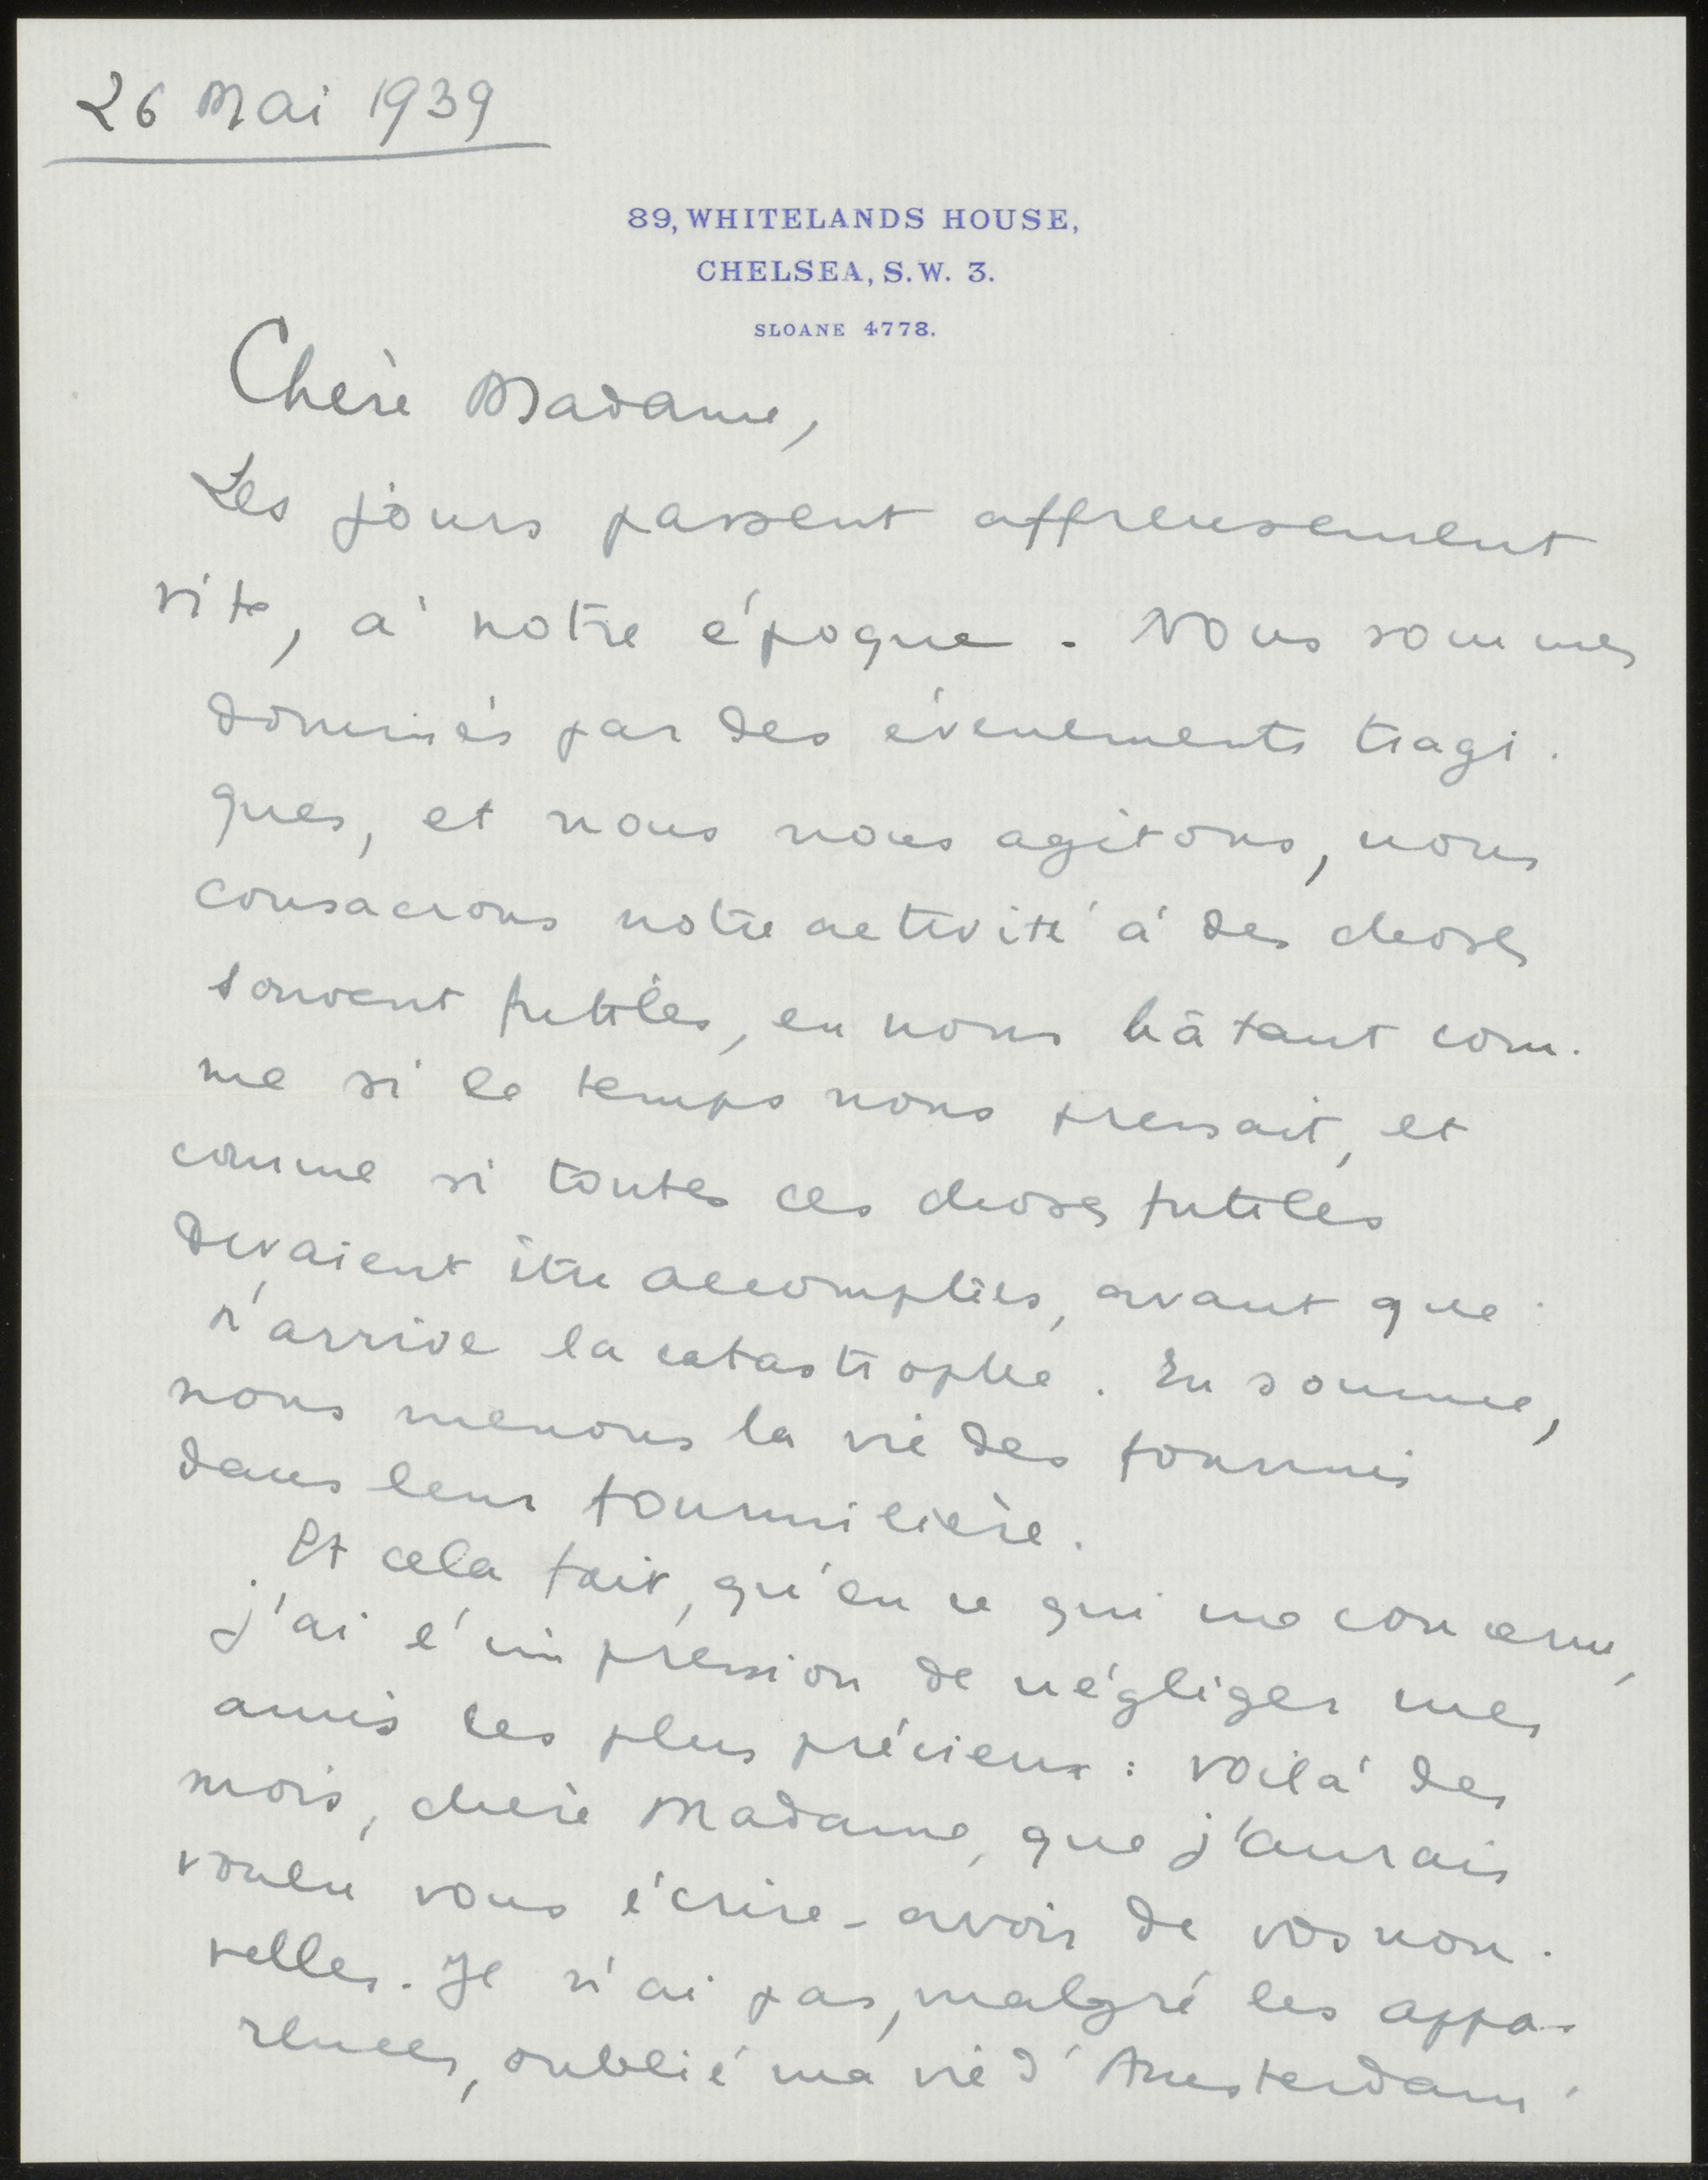 26 Mai 1939
89, WHITELANDS HOUSE,
CHELSEA, S.W. 3.
SLOANE 4778.
Chère Madame,
Les jours passent affreusement
vite, à notre époque. Nous sommes
dominés par des évènements tragi-
ques, et nous nous agitons, nous
consacrons notre activité à des choses
souvent futiles, en nous hâtant com-
me si le temps nous pressait, et
comme si toutes ces choses futiles
devaient être accomplies, avant que
n'arrive la catastrophe. En somme,
nous menons la vie des fourmis
dans leur fourmilière.
Et cela fait, qu'en ce qui me concerne,
j'ai l'impression de négliger mes
amis les plus précieux : voilà des
mois, chère Madame, que j'aurais
voulu vous écrire - avoir de vos nou-
velles. Je n'ai pas, malgré les appa-
rences, oublié ma vie d'Amsterdam